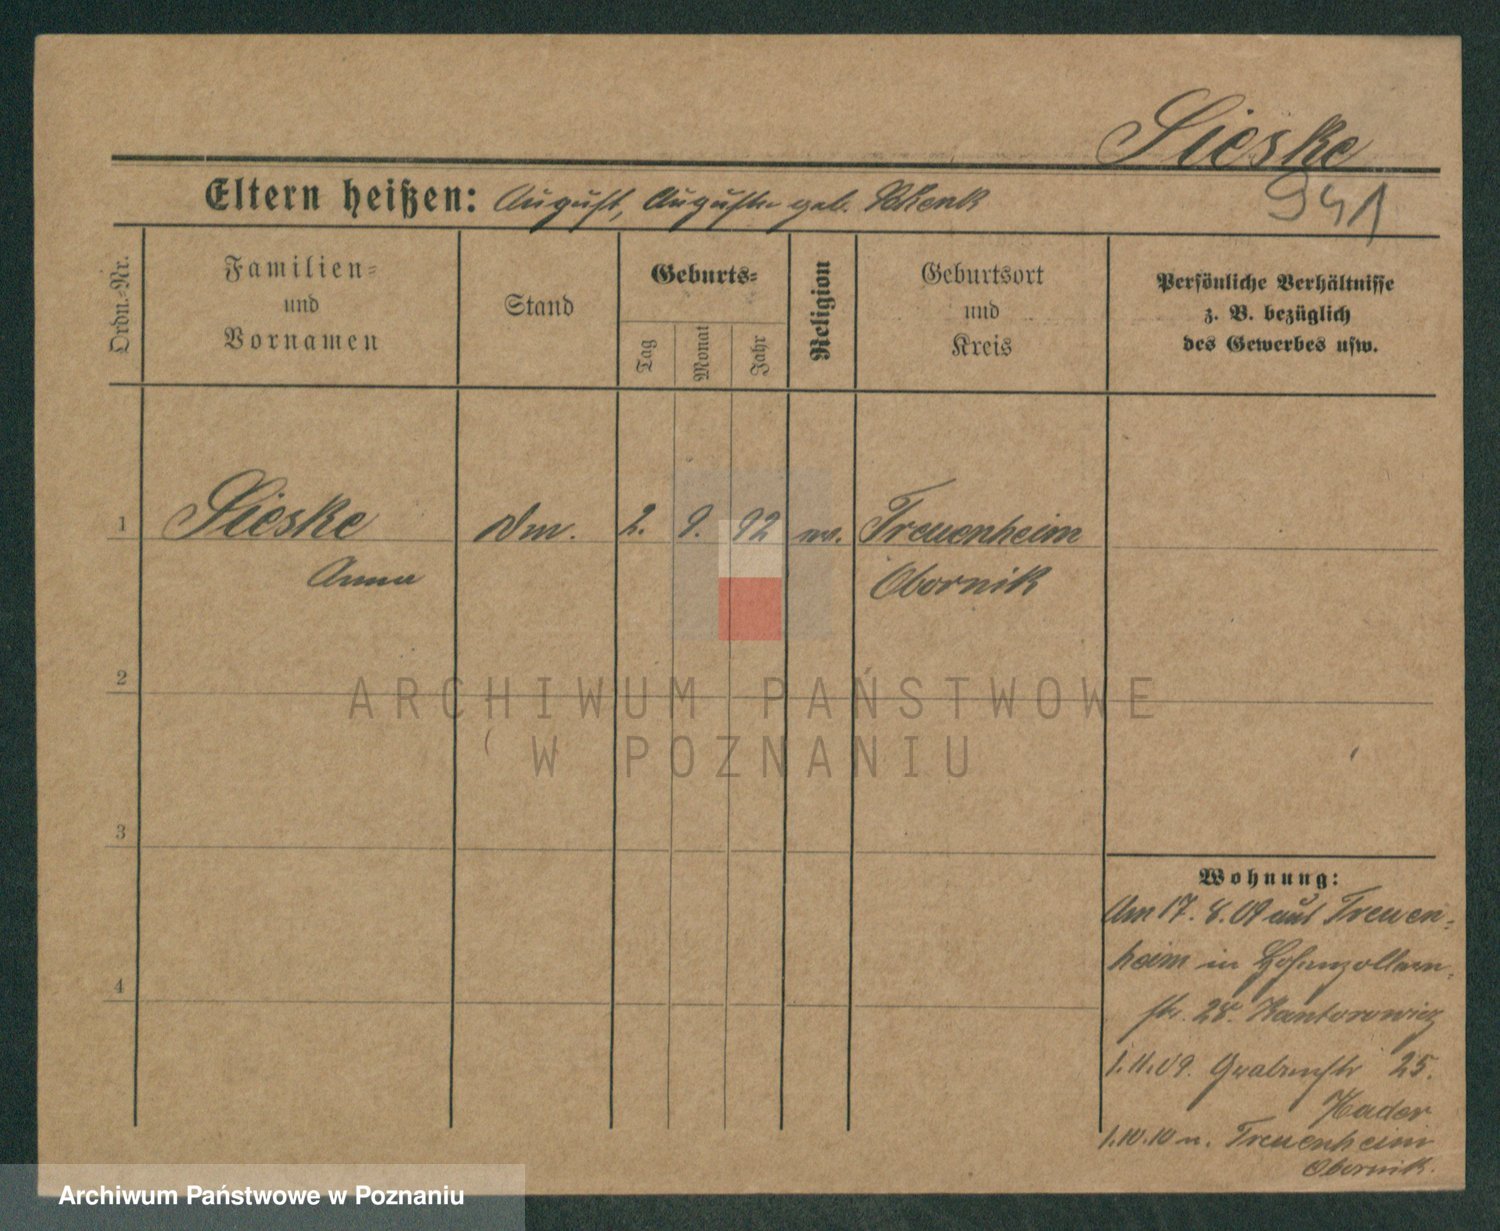 Sieske
941
Eltern heißen: August, Auguste geb. Schenk
Ordn.-Nr.
Familien-
und
Vornamen
Stand
Geburts-
Tag
Monat
Jahr
Religion
Geburtsort
und
Kreis
Persönliche Verhältnisse
z. B. bezüglich
des Gewerbes usw.
1 Sieske Dm. 2. 9. 92 ev. Treuenheim
Anna Obornik
2
ARCHIWUM PAŃSTWOWE
W POZNANIU
3
4
Wohnung:
Am 17. 8. 09 aus Treuen-
heim in Hohenzollern-
str. 28. Kantorowicz
1.11.09. Grabenstr 25.
Kader
1.10.10 n. Treuenheim
Obornik.
Archiwum Państwowe w Poznaniu